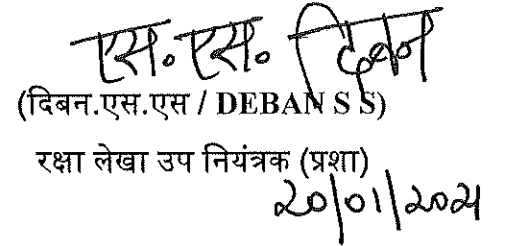 एस. एस. दिबन
(दिबन.एस.एस / DEBAN S S)
रक्षा लेखा उप नियंत्रक (प्रशा)
20/01/2021